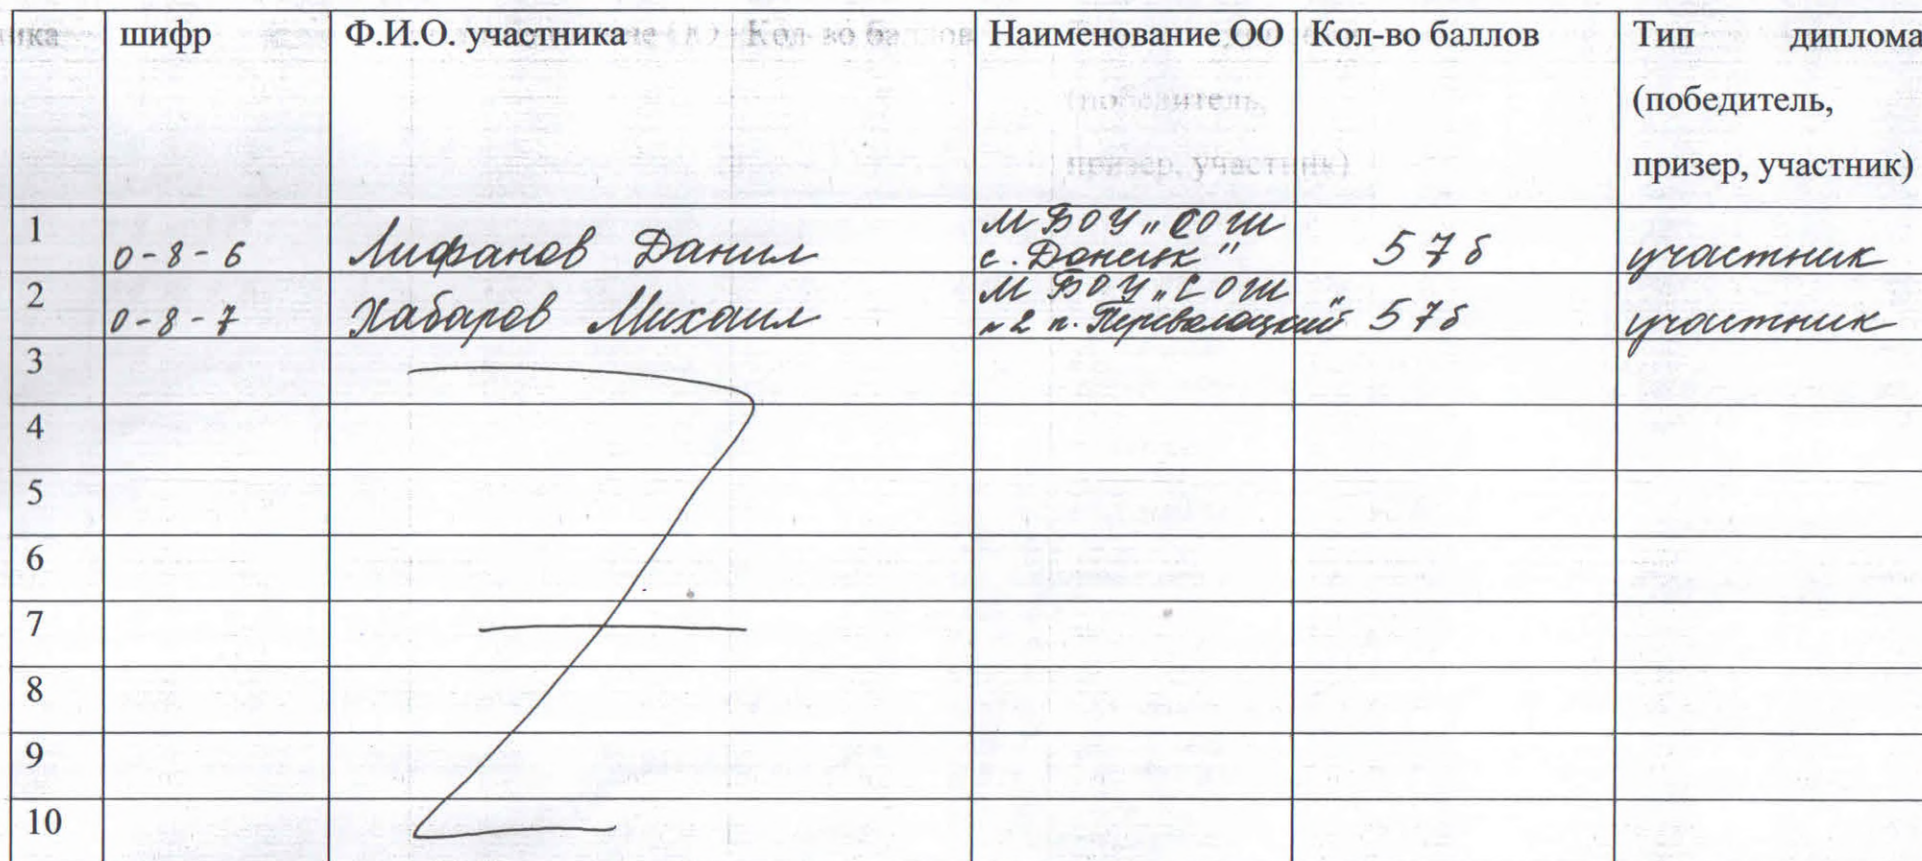 шифр Ф.И.О. участника Наименование ОО Кол-во баллов Тип диплома
(победитель,
призер, участник)
1 0-8-6 Лифанов Данил МБОУ "СОШ с. Донецк" 57б участник
2 0-8-7 Хабаров Михаил МБОУ "СОШ №2 п. Переволоцкий" 57б участник
3
4
5
6
7
8
9
10